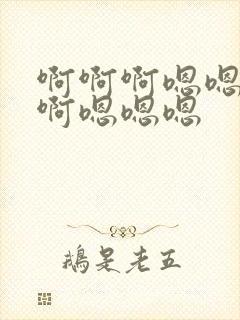 啊啊啊嗯嗯
啊嗯嗯嗯
鵝是老五